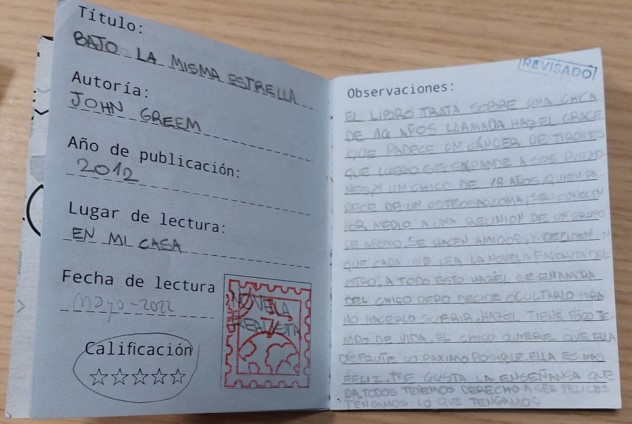 Título:
BAJO LA MISMA ESTRELLA
Autoría:
JOHN GREEM
Año de publicación:
2012
Lugar de lectura:
EN MI CASA
Fecha de lectura
Mayo-2022
NOVELA
REALISTA
Calificación
REVISADO
Observaciones:
EL LIBRO TRATA SOBRE UNA CHICA
DE 16 AÑOS LLAMADA HAZEL GRACE
QUE PADECE UN CÁNCER DE TIROIDES
QUE LUEGO SE EXPANDE A SUS
UN CHICO DE 18 AÑOS QUIEN PA
DECE DE UN OSTEOSARCOMA, SE CONOCEN
POR MEDIO A UNA REUNION DE UN GRUPO
DE APOYO, SE HACEN AMIGOS, Y DECIDEN
QUE CADA UNO LEA LA NOVELA FAVORITA DEL
OTRO, A TODO ESTO HAZEL SE ENAMORA
DEL CHICO PERO DECIDE OCULTARLO PARA
NO HACERLO SUFRIR, HAZEL TIENE POCO TI
DE VIDA, EL CHICO QUIERE QUE ELLA
DISFRUTE LO MAXIMO POSIBLE ELLA ES MAS
FELIZ. ME GUSTA LA ENSEÑANZA QUE
DA, TODOS TENEMOS DERECHO A SER FELICES
TENGAMOS LO QUE TENGAMOS